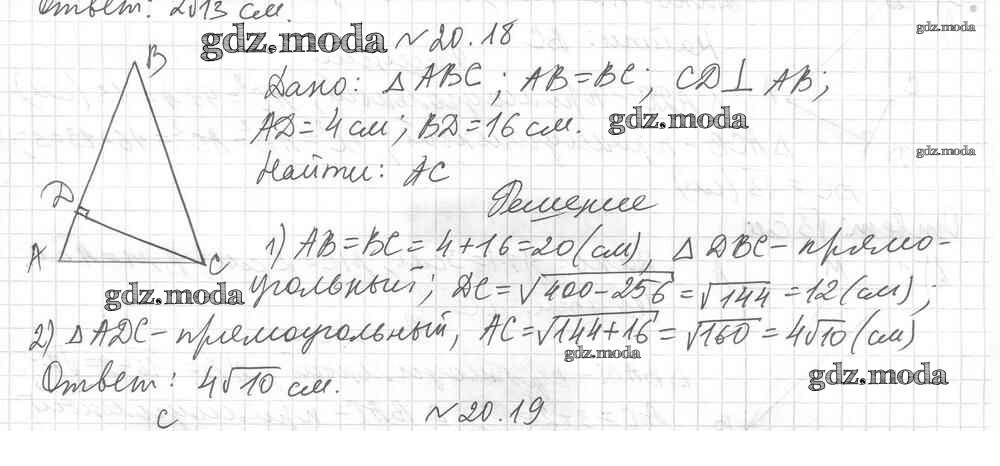 Ответ: 2√13 см.
gdz.moda № 20.18
gdz.moda
Дано: △ ABC; AB=BC; CD⊥ AB;
AD=4 см; BD=16 см. gdz.moda
gdz.moda
Найти: AC
Решение
1) AB=BC=4+16=20(см), △ DBC - прямо-
gdz.moda угольный; DC=√400-256=√144=12(см);
2) △ ADC - прямоугольный, AC=√144+16=√160=4√10(см)
gdz.moda
gdz.moda
Ответ: 4√10 см.
C № 20.19
B
D
A
C